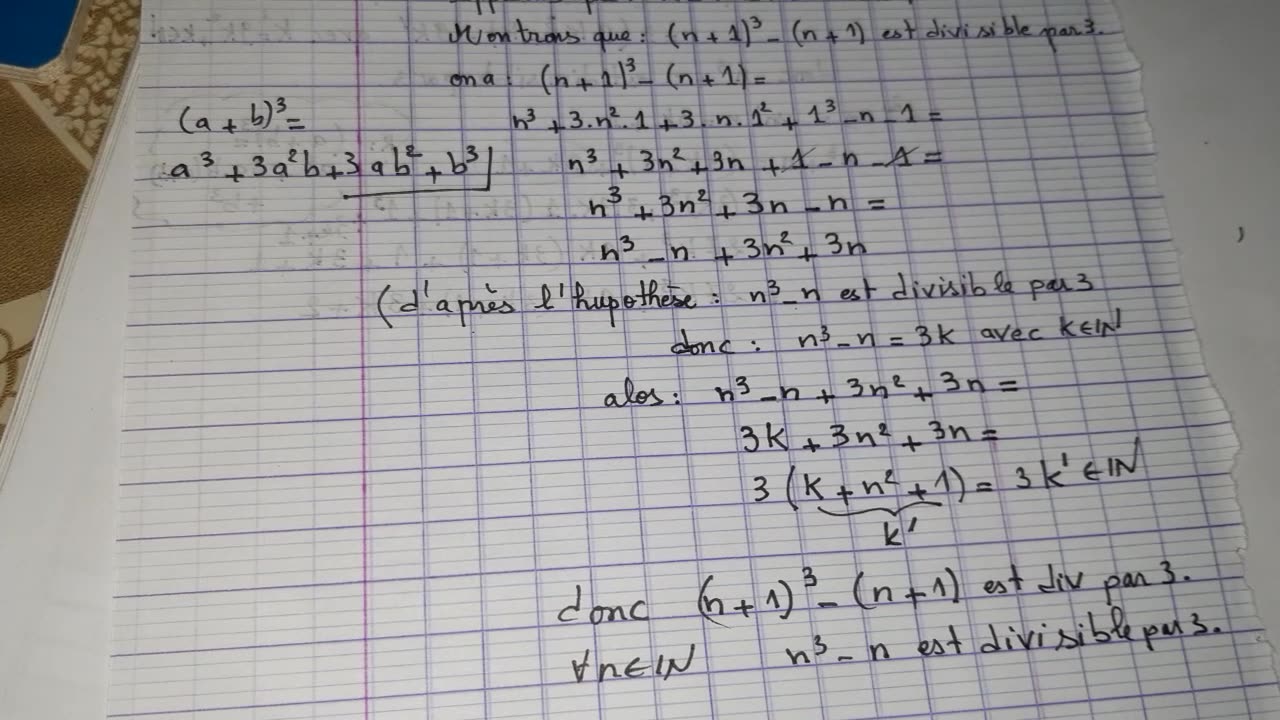 Montrons que: (n+1)³ - (n+1) est divisible par 3.
on a: (n+1)³ - (n+1) =
(a+b)³ =
n³ + 3.n².1 + 3.n.1² + 1³ - n - 1 =
a³ + 3a²b + 3ab² + b³
n³ + 3n² + 3n + 1 - n - 1 =
n³ + 3n² + 3n - n =
n³ - n + 3n² + 3n
(d'après l'hupothèse: n³ - n est divisible par 3
donc: n³ - n = 3k avec k∈IN
alos: n³ - n + 3n² + 3n =
3k + 3n² + 3n =
3(k + n² + 1) = 3k' ∈ IN
k'
donc (n+1)³ - (n+1) est div par 3.
∀n∈IN n³ - n est divisible par 3.